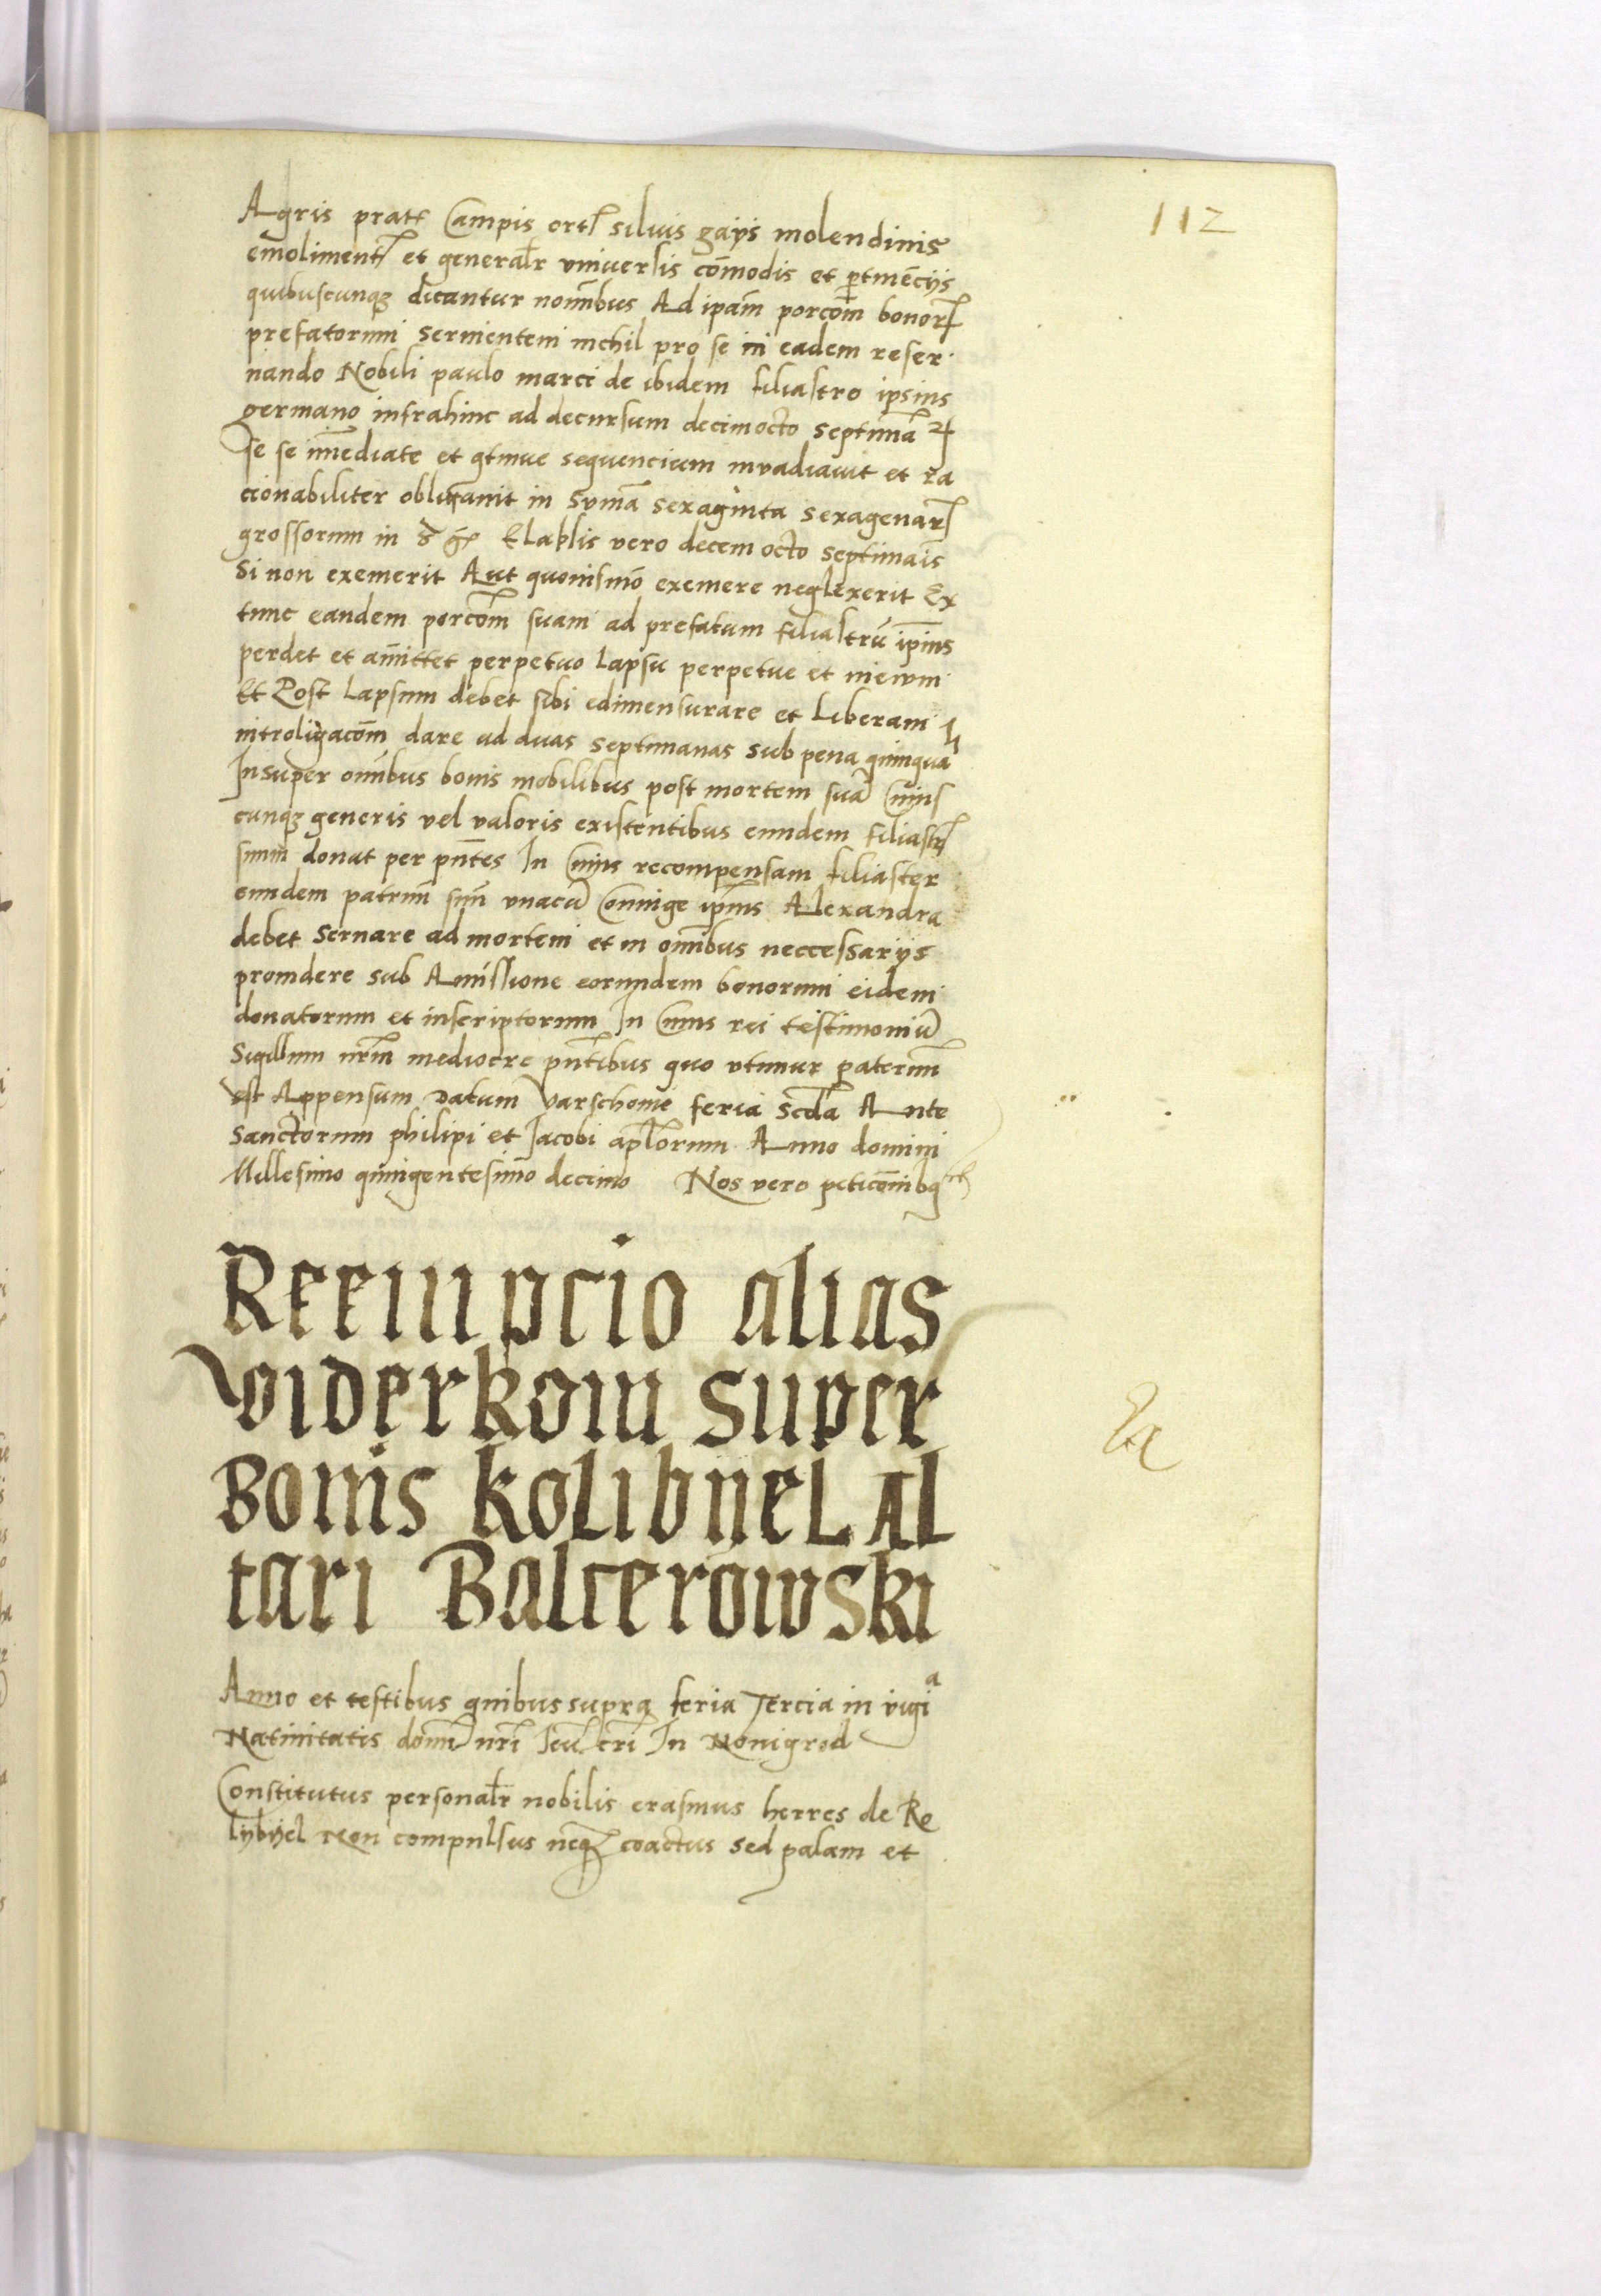 112
Agris prat Campis ort siluis gayis molendinis
emoliment et generalr vniuersis cōmodis et ꝑtinēcys
quibuscunqꝫ dicantur nominibus Ad ipam̄ porcom̄ bonorꝝ
prefatorum seruientem inchil pro se in eadem reser
uando Nobili paulo marci de ibidem filiastro ipsius
germano infrahinc ad decursum decimocto septimanaꝝ
se se īmediate et ꝯtinue sequencium invadiauit et ra
cionabiliter obligauit in Sumā sexaginta sexagenarꝝ
grossorum in Elapsis vero decem octo septimais
Si non exemerit Aut quouismō exemere neglexerit Ex
tunc eandem porcom̄ suam ad prefatum filiastrū ipius
perdet et amittet perpetuo Lapsu perpetue et in ewm
Et Post Lapsum debet sibi edimensurare et Liberam
introligacōm dare ad duas septimanas sub pena quinqua
Insuper omībus bonis mobilibus post mortem suā Cuius
cunqꝫ generis vel valoris existentibus eundem filiastꝝ
suum donat per pn̄tes In Cuius recompensam filiaster
eundem patruū suū vnacū Coniuge ipius Alexandra
debet seruare ad mortem et in omībus neccessarys
prouidere sub Amissione eorundem bonorum eidem
donatorum et inscriptorum In Cuius rei testimoniū
Sigillum nrm̄ mediocre pn̄tibus quo vtimur paternū
est Appensum Datum Varschouie feria Scd̄a Ante
Sanctorum philipi et Jacobi apl̄orum Anno domini
Millesimo quingentesimo decimo Nos vero peticōnibꝫ
Reempcio alias
viderkom super
Bonis kolibnel Al
tari Balcerowski
Anno et testibus quibus supra feria Tercia in vigia
Natiuitatis domī nrī Jeu cri In Nouigrod
Constitutus personalr nobilis erasmus herres de Ko
lybyel Non compulsus neqꝫ coactus sed palam et